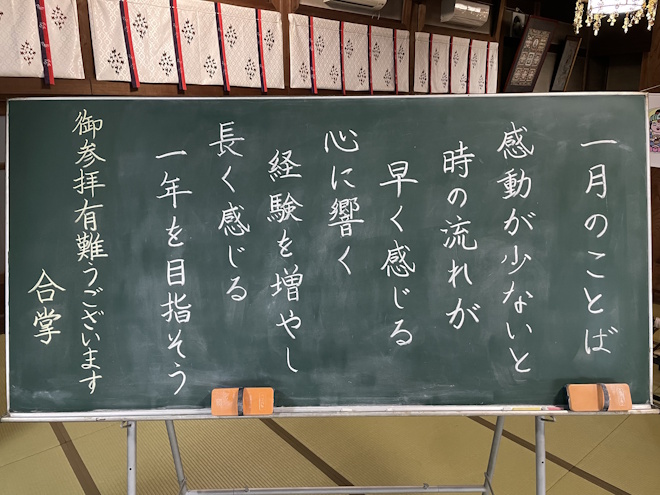 一月のことば
感動が少ないと
時の流れが
早く感じる
心に響く
経験を増やし
長く感じる
一年を目指そう
御参拝有難うございます
合掌